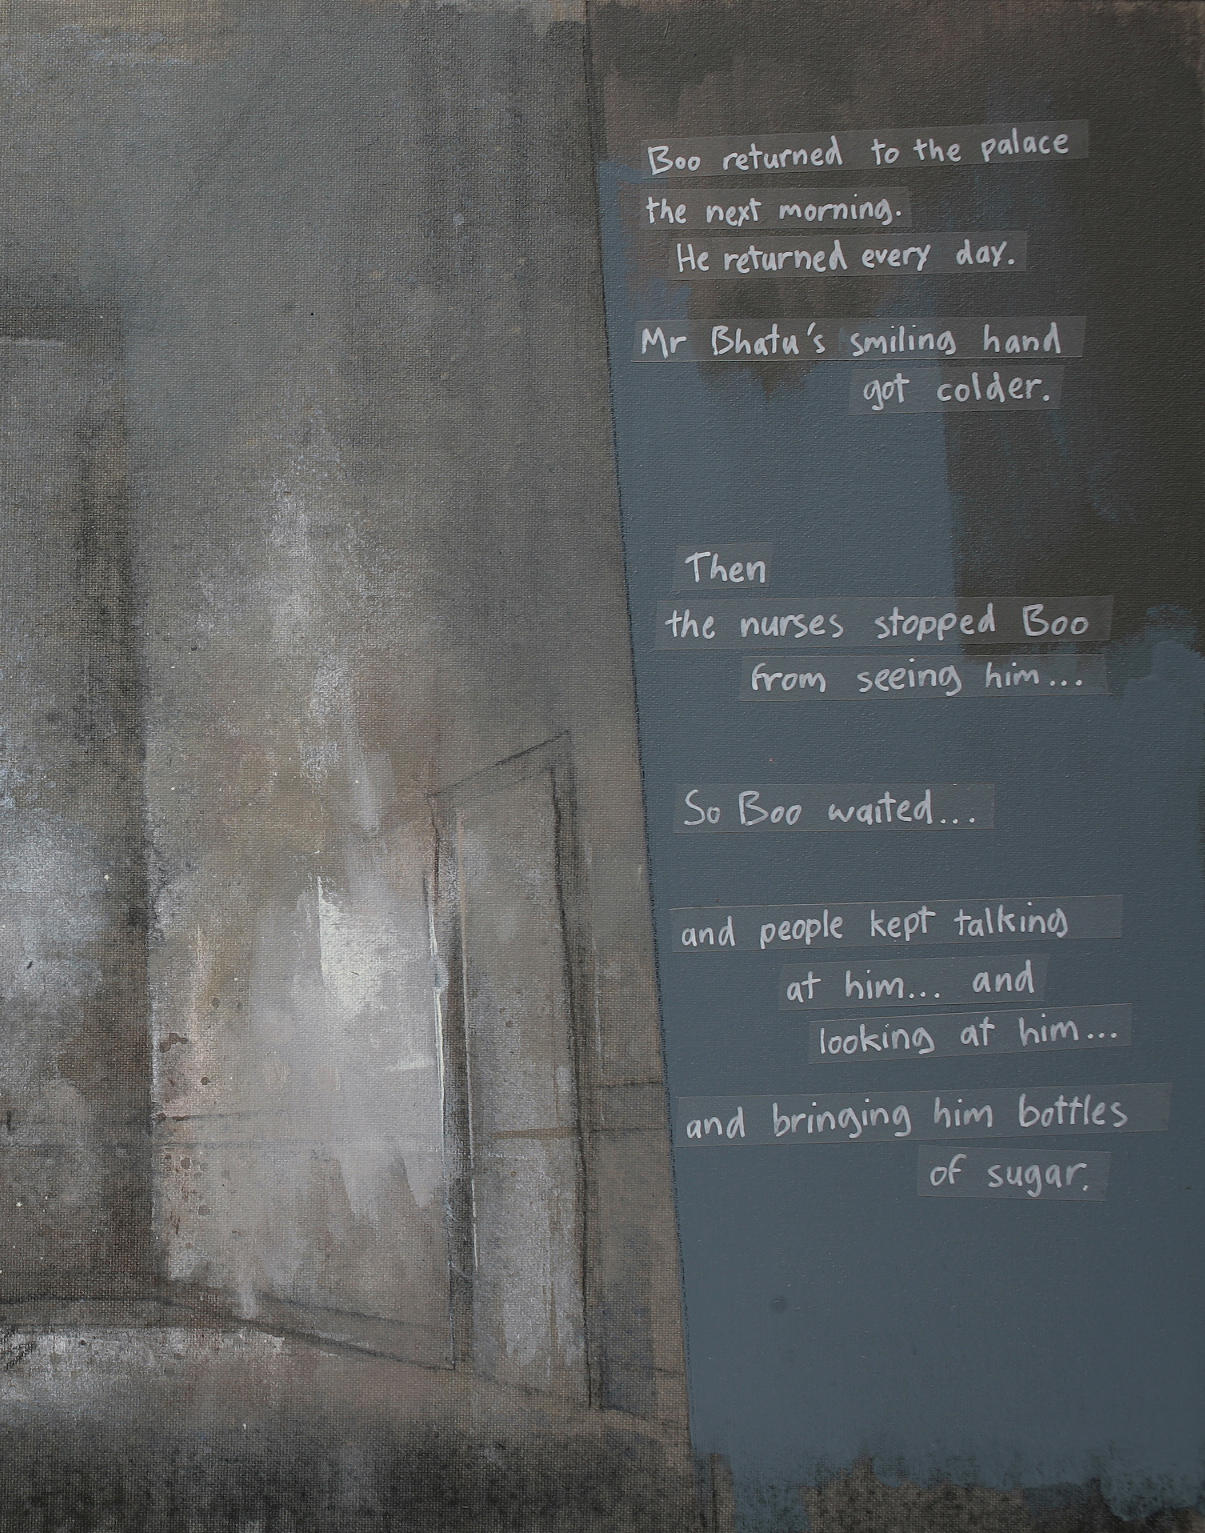 Boo returned to the palace
the next morning.
He returned every day.
Mr Bhatu's smiling hand
got colder.
Then
the nurses stopped Boo
from seeing him...
So Boo waited...
and people kept talking
at him... and
looking at him...
and bringing him bottles
of sugar.